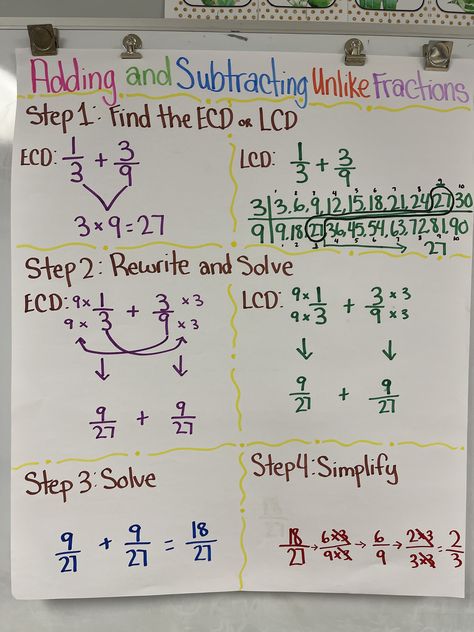 Adding and Subtracting Unlike Fractions
Step 1: Find the ECD or LCD
ECD: 1/3 + 3/9
3 × 9 = 27
LCD: 1/3 + 3/9
3 | 3, 6, 9, 12, 15, 18, 21, 24, 27, 30
9 | 9, 18, 27, 36, 45, 54, 63, 72, 81, 90
27
Step 2: Rewrite and Solve
ECD: 9×1/9×3 + 3×3/9×3
9/27 + 9/27
LCD: 9×1/9×3 + 3×3/9×3
9/27 + 9/27
Step 3: Solve
9/27 + 9/27 = 18/27
Step 4: Simplify
18/27 → 6×3/9×3 → 6/9 → 2×3/3×3 = 2/3